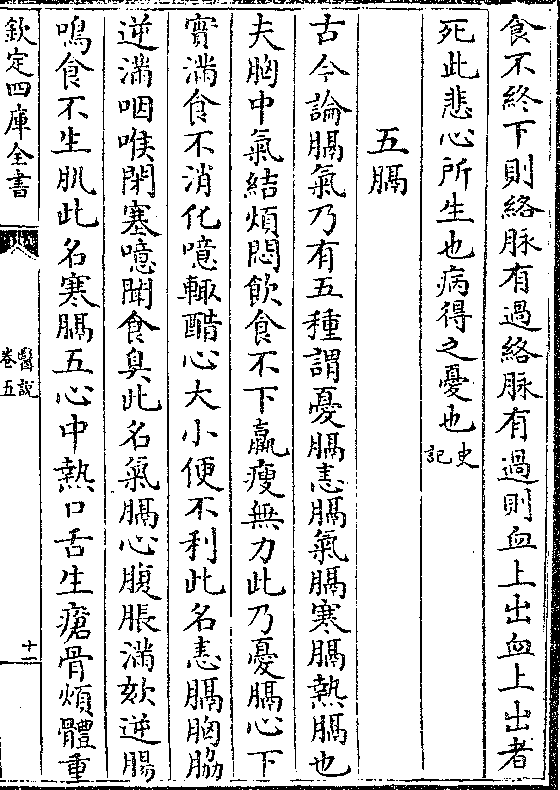 食不終下則絡脉有過絡脉有過則血上出血上出者
死此悲心所生也病得之憂也史記
五膈
古今論膈氣乃有五種謂憂膈恚膈氣膈寒膈熱膈也
夫胸中氣結煩悶飲食不下羸瘦無力此乃憂膈心下
實滿食不消化噫輙醋心大小便不利此名恚膈胸脇
逆滿咽喉閉塞噫聞食臭此名氣膈心腹脹滿欬逆腸
鳴食不生肌此名寒膈五心中熱口舌生瘡骨煩體重
欽定四庫全書
醫說
卷五
十一